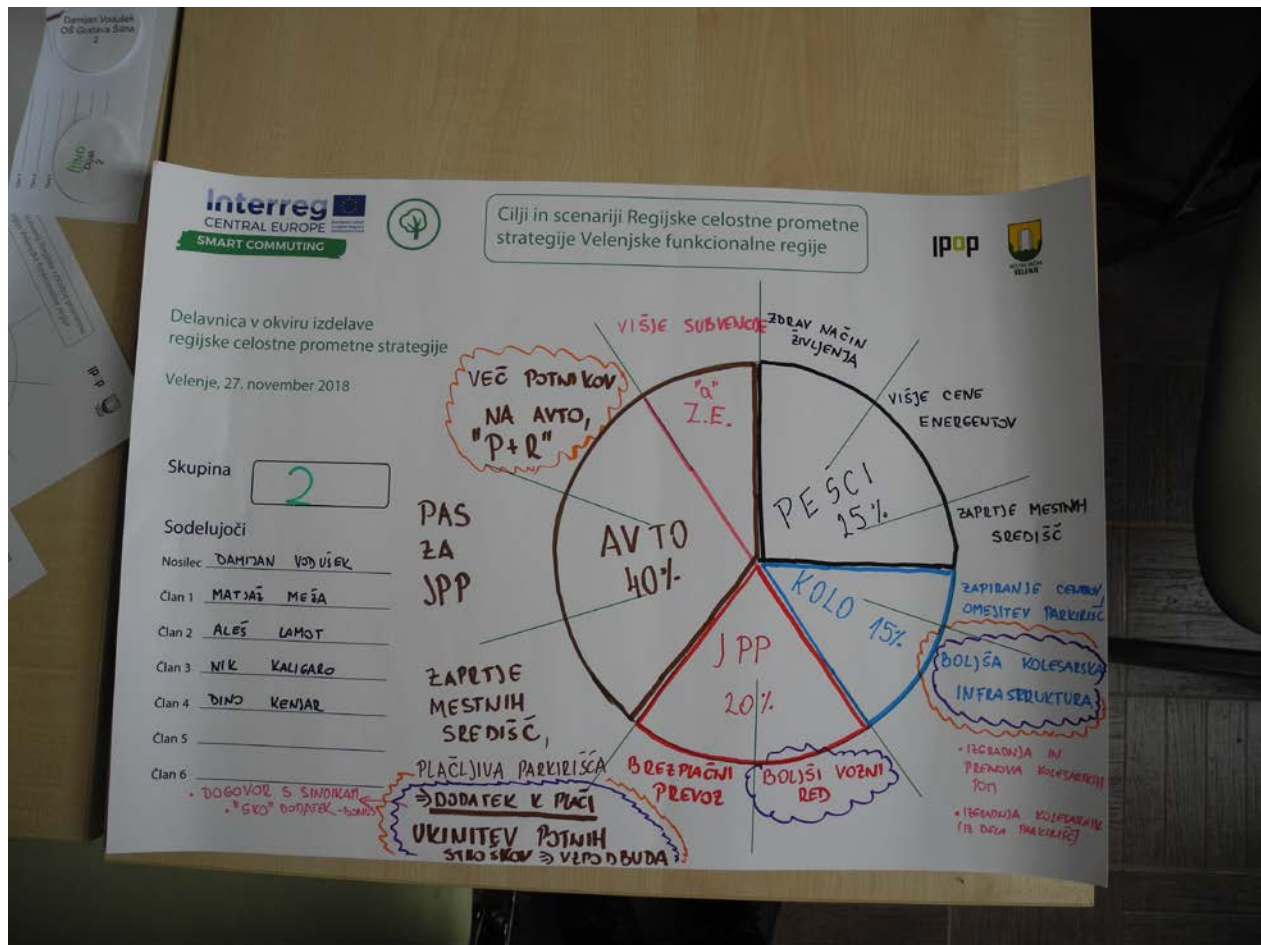 Damijan Vodušek
OŠ Gustava Šiliha
2
DINO
2
Interreg
CENTRAL EUROPE
SMART COMMUTING
Cilji in scenariji Regijske celostne prometne
strategije Velenjske funkcionalne regije
IPOP
VELENJE
Delavnica v okviru izdelave
regijske celostne prometne strategije
Velenje, 27. november 2018
Skupina 2
Sodelujoči
Nosilec DAMIJAN VODUŠEK
Član 1 MATJAŽ MEŽA
Član 2 ALEŠ LAMOT
Član 3 NIK KALIGARO
Član 4 DINO KENJAR
Član 5
Član 6
• DOGOVOR S SINDIKATI
• "EKO" DODATEK - BONUS
VIŠJE SUBVENCIJE
"a"
Z.E.
VEČ POTNIKOV
NA AVTO,
"P+R"
PAS
ZA
JPP
AVTO
40%
ZAPRTJE
MESTNIH
SREDIŠČ,
PLAČLJIVA PARKIRIŠČA
⇒ DODATEK K PLAČI
UKINITEV POTNIH
STROŠKOV ⇒ VZPODBUDA
ZDRAV NAČIN
ŽIVLJENJA
VIŠJE CENE
ENERGENTOV
PEŠCI
25%
ZAPRTJE MESTNIH
SREDIŠČ
KOLO 15%
ZAPIRANJE CENTROV,
OMEJITEV PARKIRIŠČ
BOLJŠA KOLESARSKA
INFRASTRUKTURA
• IZGRADNJA IN
PRENOVA KOLESARSKIH
POTI
• IZGRADNJA KOLESARNIK
(IZ DELA PARKIRIŠČ)
JPP
20%
BREZPLAČNI
PREVOZ
BOLJŠI VOZNI
RED